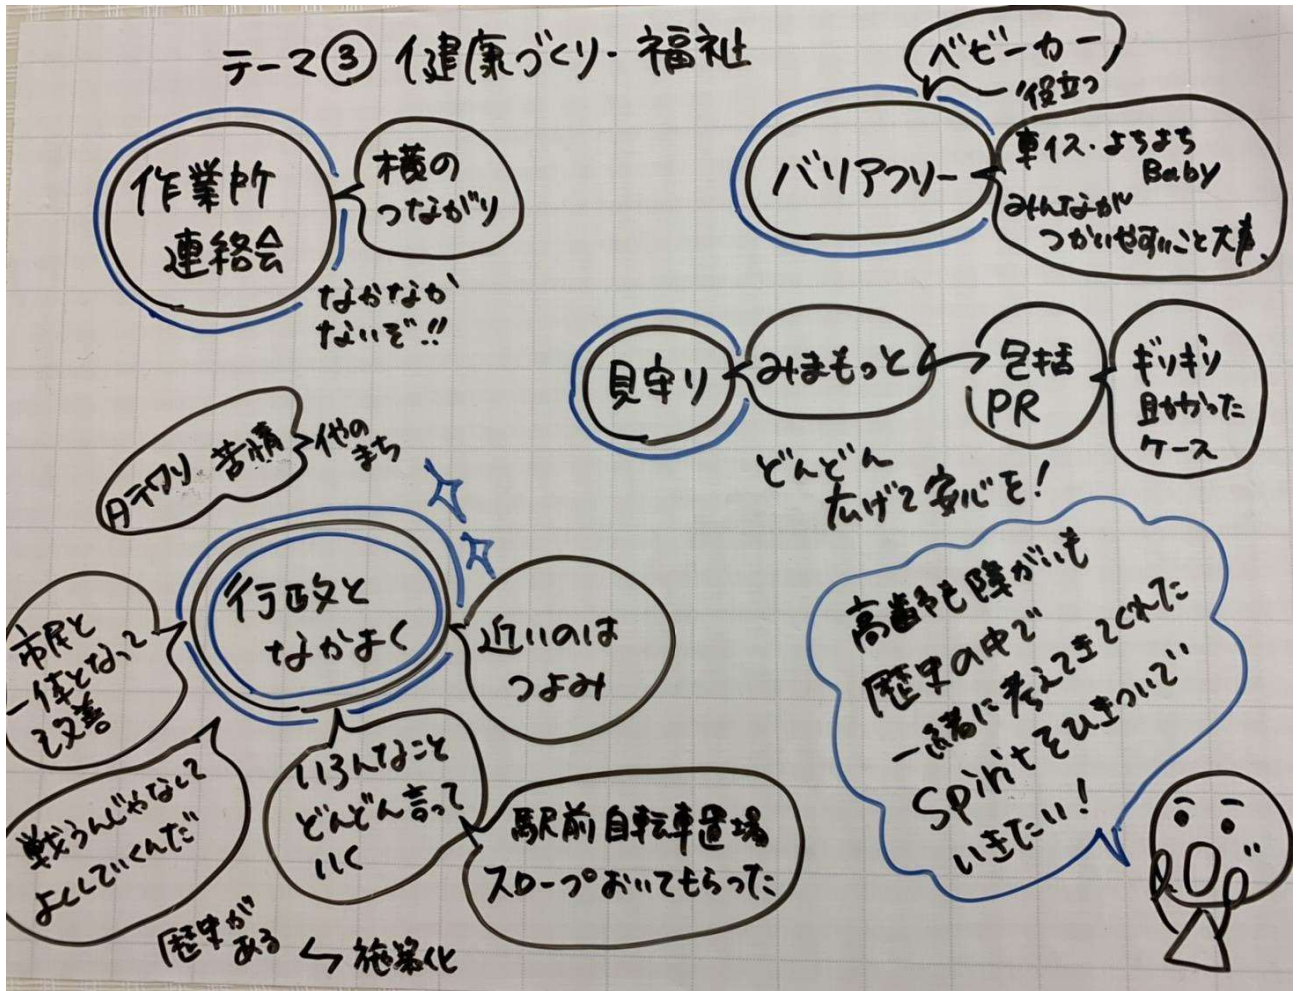 テーマ③ 健康づくり・福祉
作業所
連絡会
横の
つながり
なかなか
ないぞ!!
ベビーカー
役立つ
バリアフリー
車イス・よちよち
Baby
みんなが
つかいやすいこと大事、
見守り
みまもっと
包括
PR
ギリギリ
助かった
ケース
どんどん
広げて安心を!
タテワリ 苦情
他の
まち
行政と
なかよく
市民と
一体となって
改善
近いのは
つよみ
戦うんじゃなくて
よくしていくんだ
いろんなこと
どんどん言って
いく
駅前自転車置場
スロープおいてもらった
歴史が
ある
↳ 施策化
高齢も障がいも
歴史の中で
一緒に考えてきてくれた
Spiritをひきついで
いきたい!